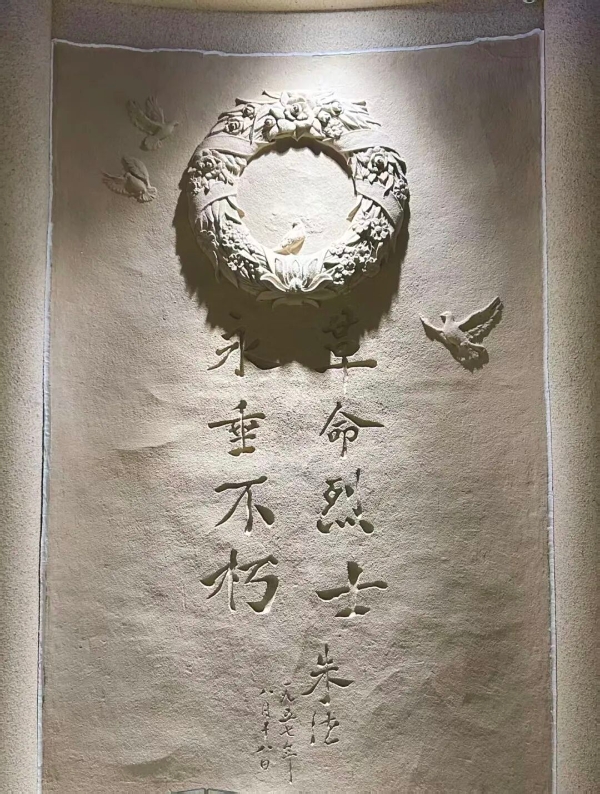 革命烈士
永垂不朽
朱德
一九五七年
八月十八日